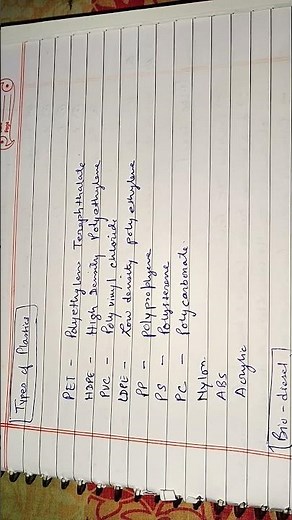 Types of Plastics
PET - Polyethylene Teraphthalate
HDPE - High Density Polyethylene
PVC - Polyvinyl chloride
LDPE - Low density polyethylene
PP - Polyprophyene
PS - Polysterene
PC - Polycarbonate
Nylon
ABS
Acrylic
Bio-diesel